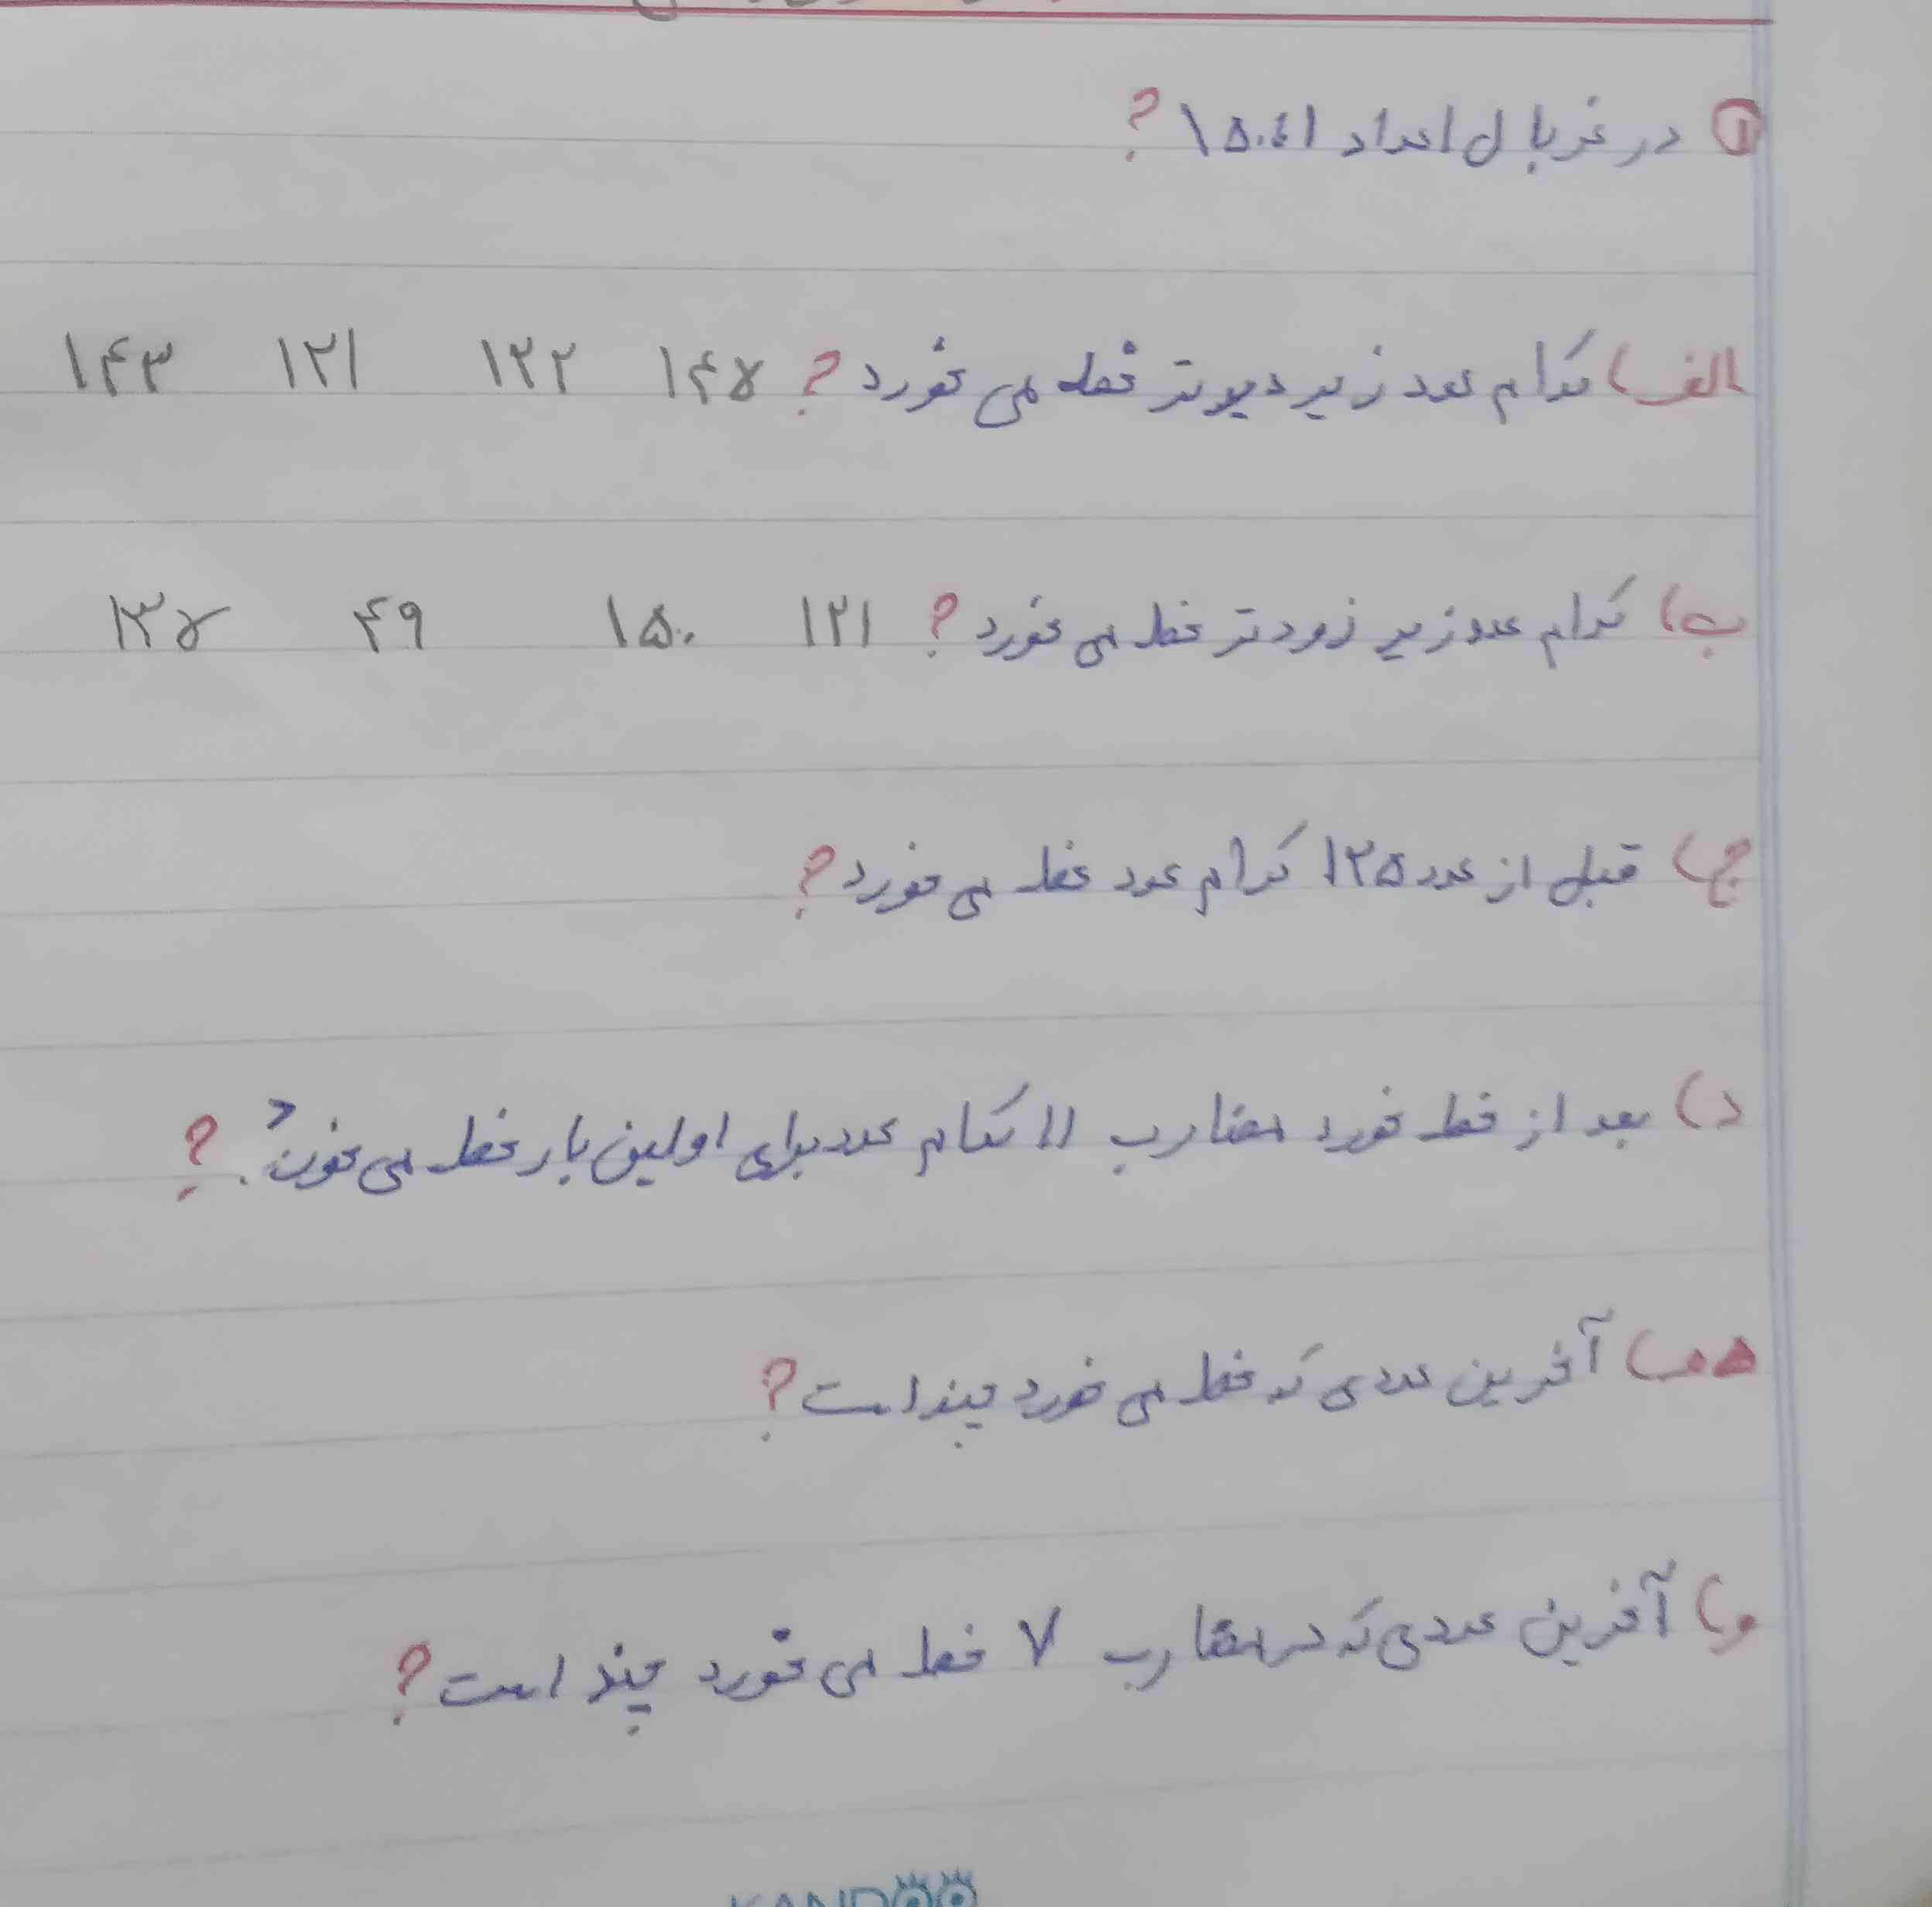 ① در غربال اعداد ۱ تا ۱۵۰ ؟
الف) کدام عدد زیر دیرتر خط می خورد ؟ ۱۴۵ ۱۲۲ ۱۲۱ ۱۴۳
ب) کدام عدد زیر زودتر خط می خورد ؟ ۱۲۱ ۱۵۰ ۴۹ ۱۳۵
ج) قبل از عدد ۱۲۵ کدام عدد خط می خورد ؟
د) بعد از خط خورد مضارب ۱۱ کدام عدد برای اولین بار خط می خورد. ؟
ه) آخرین عددی که خط می خورد چند است ؟
و) آخرین عددی که در مضارب ۷ خط می خورد چند است ؟